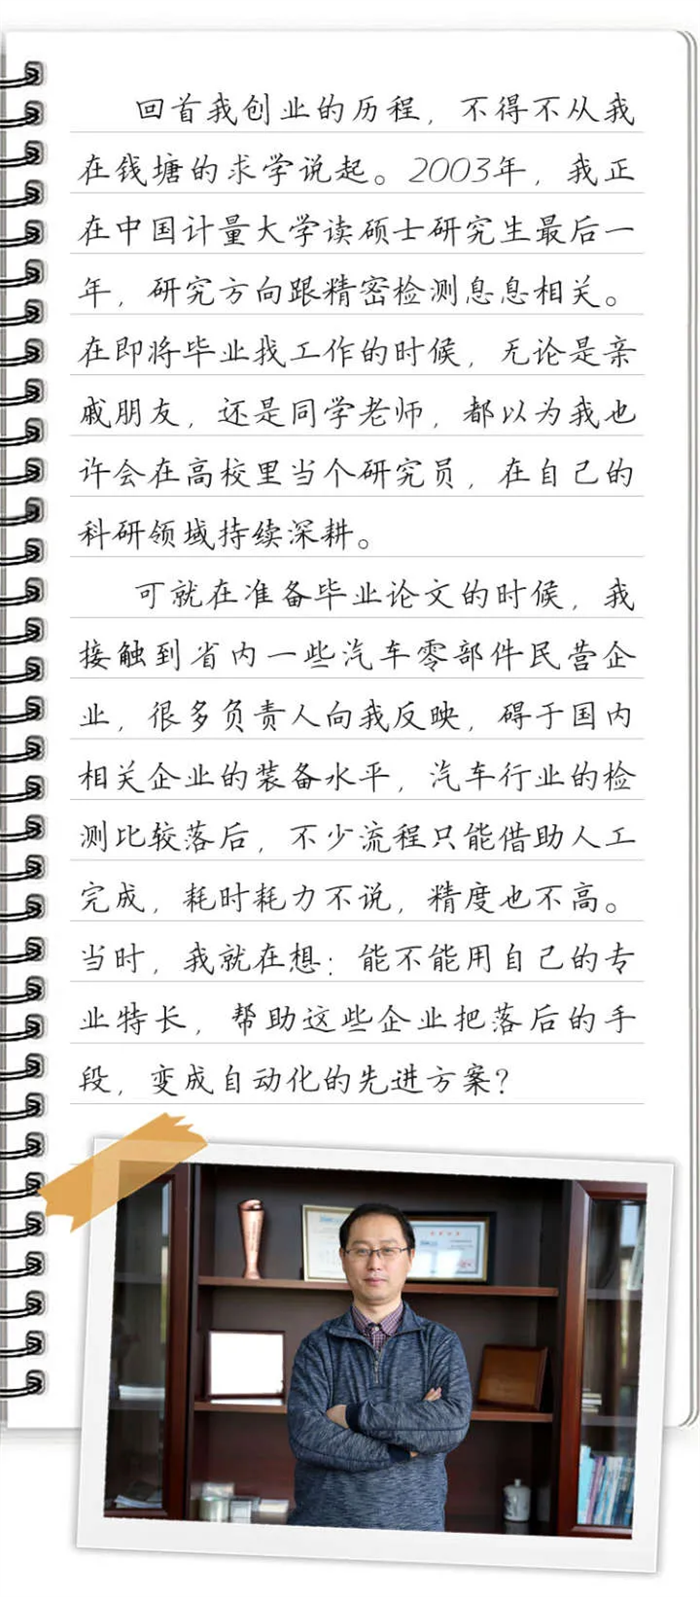 回首我创业的历程，不得不从我
在钱塘的求学说起。2003年，我正
在中国计量大学读硕士研究生最后一
年，研究方向跟精密检测息息相关。
在即将毕业找工作的时候，无论是亲
戚朋友，还是同学老师，都以为我也
许会在高校里当个研究员，在自己的
科研领域持续深耕。
可就在准备毕业论文的时候，我
接触到省内一些汽车零部件民营企
业，很多负责人向我反映，碍于国内
相关企业的装备水平，汽车行业的检
测比较落后，不少流程只能借助人工
完成，耗时耗力不说，精度也不高。
当时，我就在想：能不能用自己的专
业特长，帮助这些企业把落后的手
段，变成自动化的先进方案？